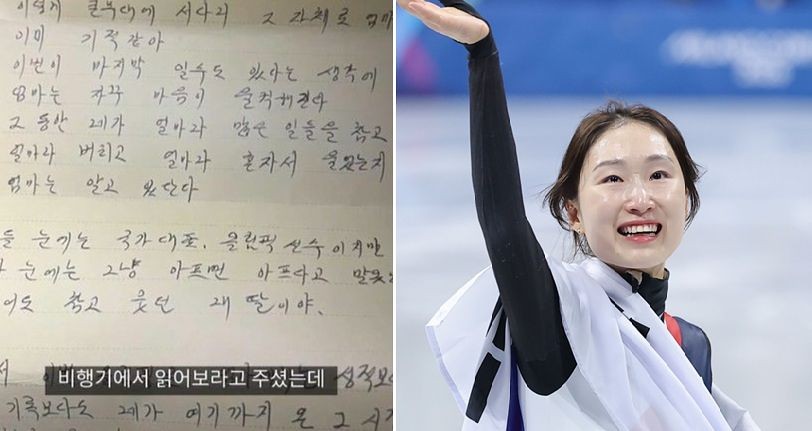 이렇게 큰 무대에 서다니 그 자체로 엄마
이미 기적같아
이번이 마지막 일수도 있다는 생각에
엄마는 자꾸 마음이 울컥해진다
그동안 네가 얼마나 많은 일들을 참고
얼마나 버티고 얼마나 혼자서 울었는지
엄마는 알고 있단다
들 눈에는 국가대표, 올림픽 선수 이지만
눈에는 그냥 아프면 아프다고 말못
어도 참고 웃던 내 딸이야.
비행기에서 읽어보라고 주셨는데
성적보다
기록보다도 네가 여기까지 온 그 시